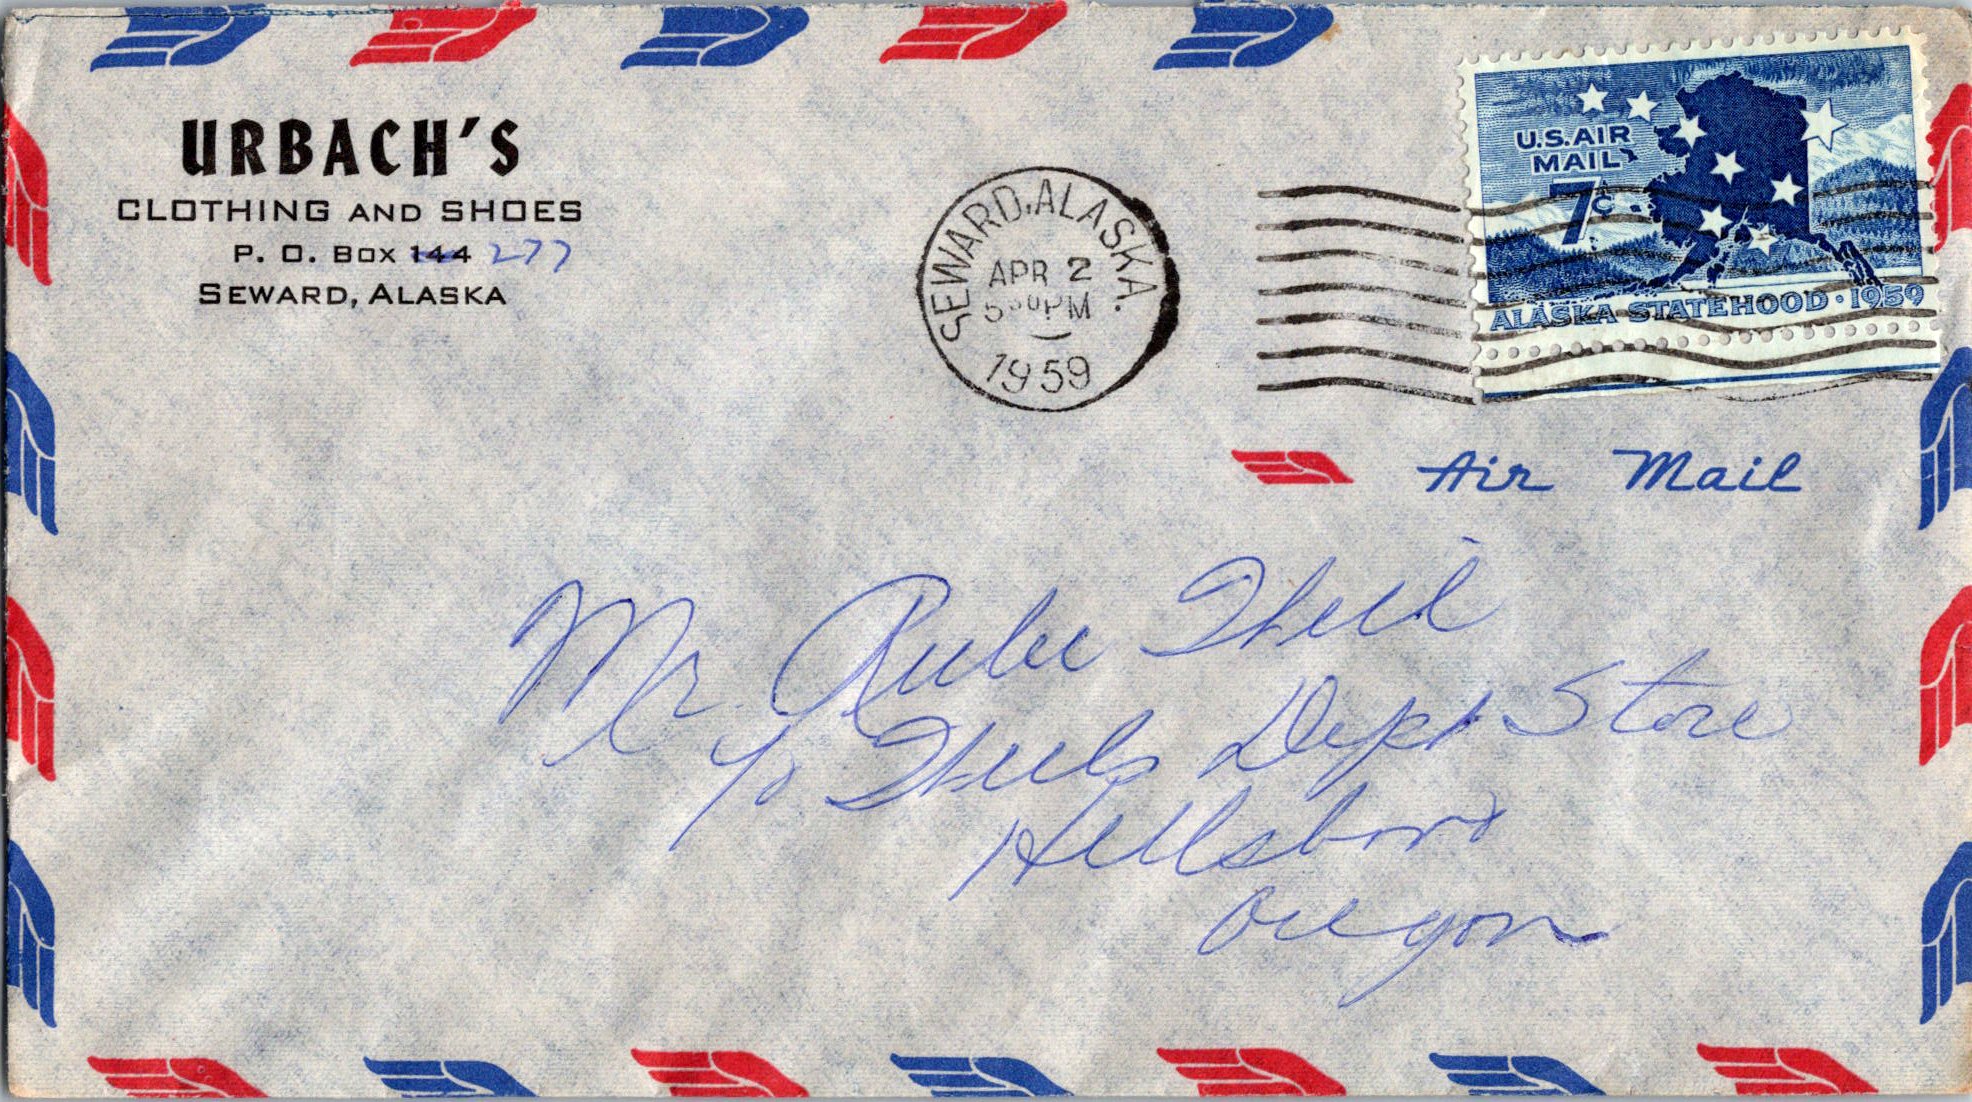 URBACH'S
CLOTHING AND SHOES
P. O. BOX 144 277
SEWARD, ALASKA
SEWARD, ALASKA.
APR 2
5 30 PM
1959
U.S. AIR
MAIL
7¢
ALASKA STATEHOOD · 1959
Air Mail
Mr. Rube Theil
℅ Theils Dept Store
Hillsboro
Oregon